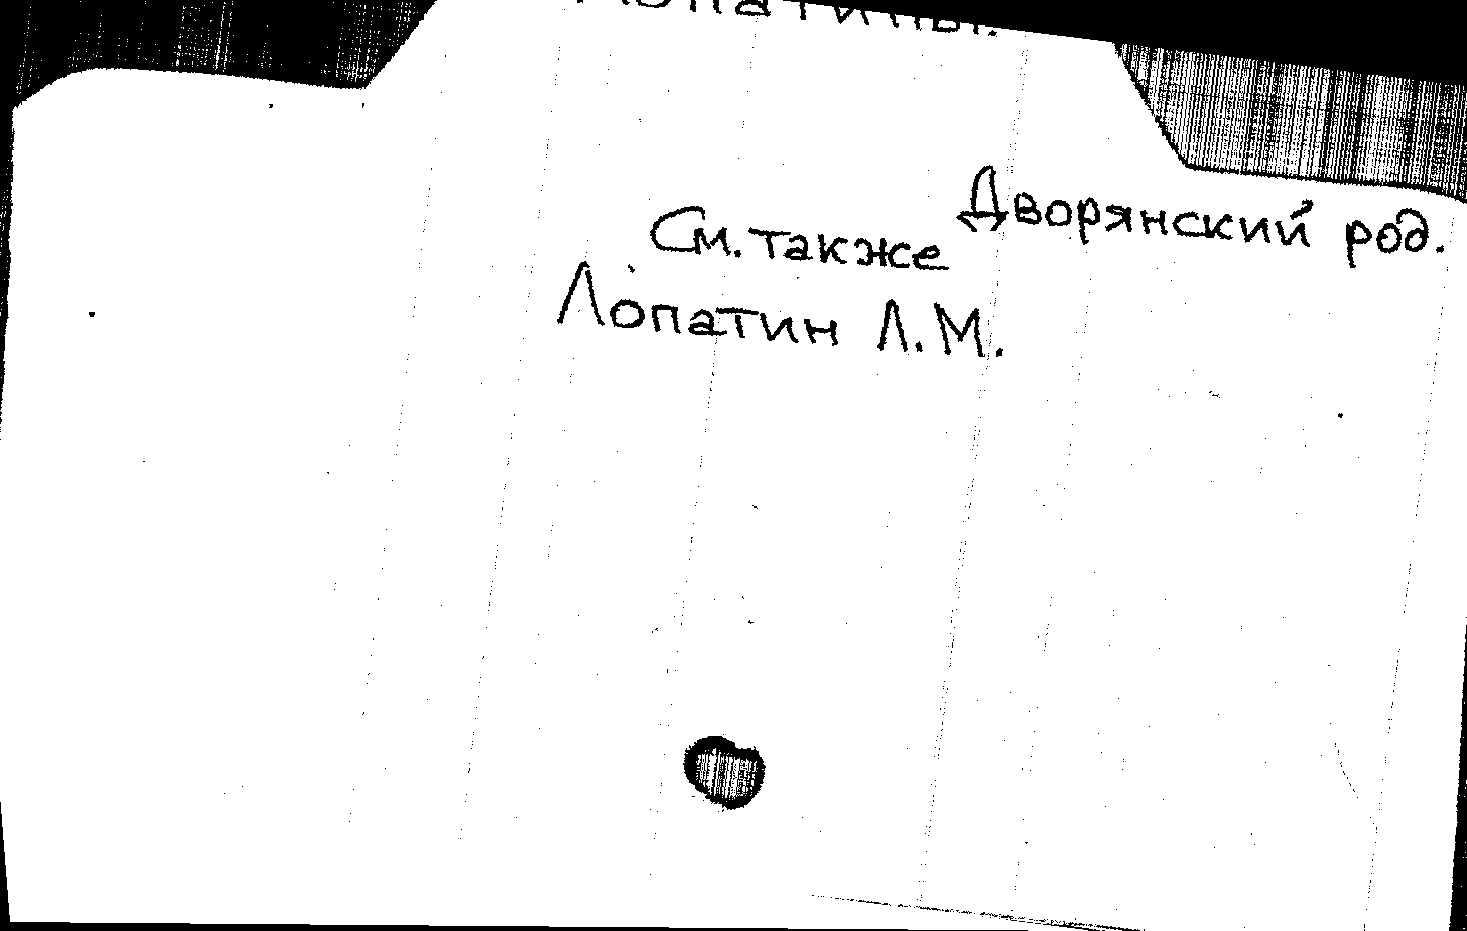 Лопатины.
Дворянский род.
См. также
Лопатин Л.М.